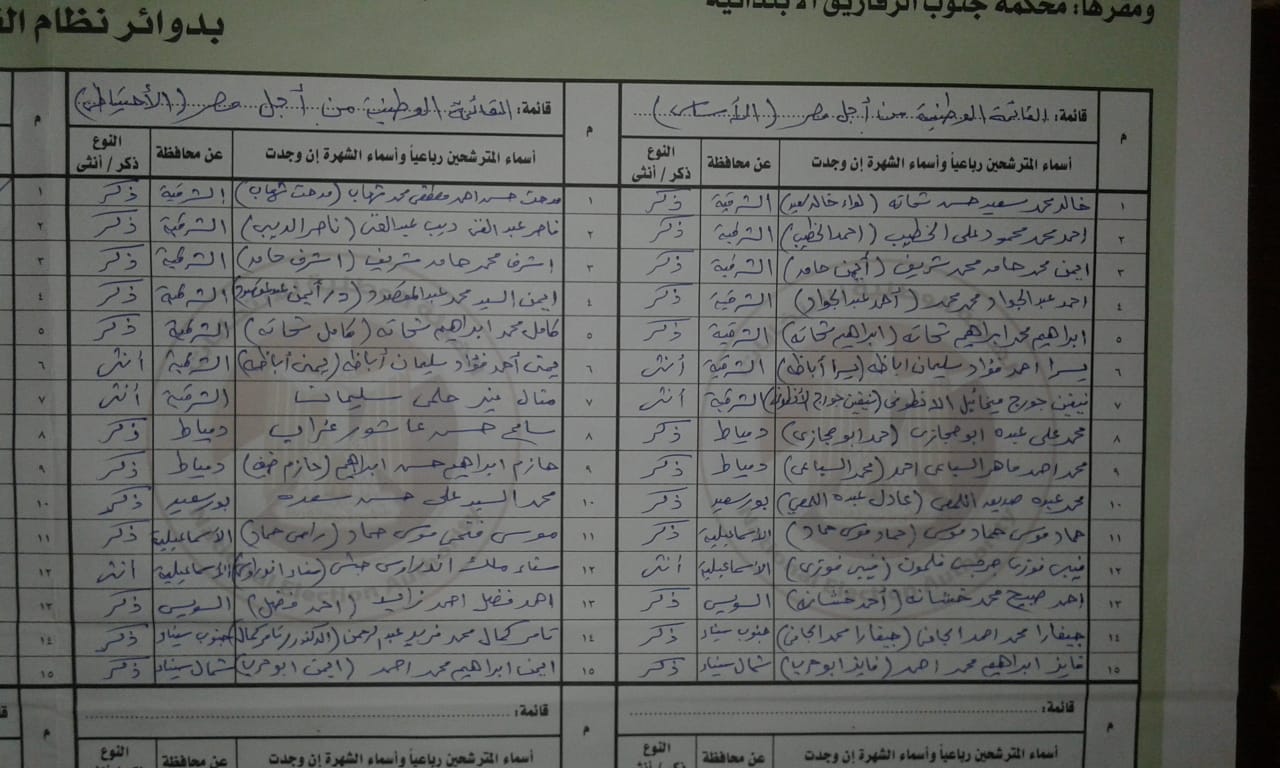 ومقرها: محكمة جنوب الزقازيق الابتدائية
بدوائر نظام
م
قائمة: القائمة الوطنية من أجل مصر (الأساسى)
م
قائمة: القائمة الوطنية من أجل مصر (الأحتياطى)
م
أسماء المترشحين رباعياً وأسماء الشهرة إن وجدت
عن محافظة
النوع ذكر / أنثى
أسماء المترشحين رباعياً وأسماء الشهرة إن وجدت
عن محافظة
النوع ذكر / أنثى
١ خالد محمد سعيد حسن شحاته (لواء خالد سعيد) الشرقية ذكر
١ مدحت حسن احمد مصطفى محمد شهاب (مدحت شهاب) الشرقية ذكر ١
٢ احمد محمد محمود على الخطيب (احمد الخطيب) الشرقية ذكر
٢ ناصر عبد الغنى ديب عبد الغنى (ناصر الديب) الشرقية ذكر ٢
٣ ايمن محمد حامد محمد شريف (أيمن حامد) الشرقية ذكر
٣ اشرف محمد حامد شريف (اشرف حامد) الشرقية ذكر ٣
٤ احمد عبد الجواد محمد محمد (أحمد عبد الجواد) الشرقية ذكر
٤ ايمن السيد محمد عبد المقصود (د/ أيمن عبد المقصود) الشرقية ذكر ٤
٥ ابراهيم محمد ابراهيم شحاته (ابراهيم شحاته) الشرقية ذكر
٥ كامل محمد ابراهيم شحاته (كامل شحاته) الشرقية ذكر ٥
٦ يسرا احمد فؤاد سليمان اباظه (يسرا أباظه) الشرقية أنثى
٦ يمنى أحمد فؤاد سليمان أباظه (يمنى أباظه) الشرقية أنثى ٦
٧ نيفين جورج ميخائيل (نيفين جورج) الشرقية أنثى
٧ منال حلمى سليمان الشرقية أنثى ٧
٨ محمد على عبده ابو حجازى (حمد ابو حجازى) دمياط ذكر
٨ سامح حسن عاشور دمياط ذكر ٨
٩ محمد احمد ماهر السباعى احمد (محمد السباعى) دمياط ذكر
٩ حازم ابراهيم حسن ابراهيم (حازم) دمياط ذكر ٩
١٠ محمد عبده اللمعى (عادل عبده اللمعي) بورسعيد ذكر
١٠ محمد السيد على حسن سعده بورسعيد ذكر ١٠
١١ حماد موسى حماد موسى (حماد موسى حماد) الاسماعيلية ذكر
١١ موسى فتحى موسى حماد (رامى حماد) الاسماعيلية ذكر ١١
١٢ فيبى فوزى جرجس فلمون (فيبى فوزى) الاسماعيلية أنثى
١٢ سناء ملك اندراوس الاسماعيلية انثى ١٢
١٣ احمد صبيح محمد خشانه (أحمد خشانه) السويس ذكر
١٣ احمد فضل احمد (احمد فضل) السويس ذكر ١٣
١٤ جيفارا محمد احمد الجافى (جيفارا محمد الجافى) جنوب سيناء ذكر
١٤ تامر كمال محمد فريد عبد الرحمن (الدكتور/ تامر كمال) جنوب سيناء ذكر ١٤
١٥ فايز ابراهيم محمد احمد (فايز ابو حربا) شمال سيناء ذكر
١٥ ايمن ابراهيم محمد احمد (ايمن ابو حربا) شمال سيناء ذكر ١٥
م
قائمة:
م
قائمة:
م
أسماء المترشحين رباعياً وأسماء الشهرة إن وجدت
عن محافظة
النوع ذكر / أنثى
أسماء المترشحين رباعياً وأسماء الشهرة إن وجدت
عن محافظة
النوع